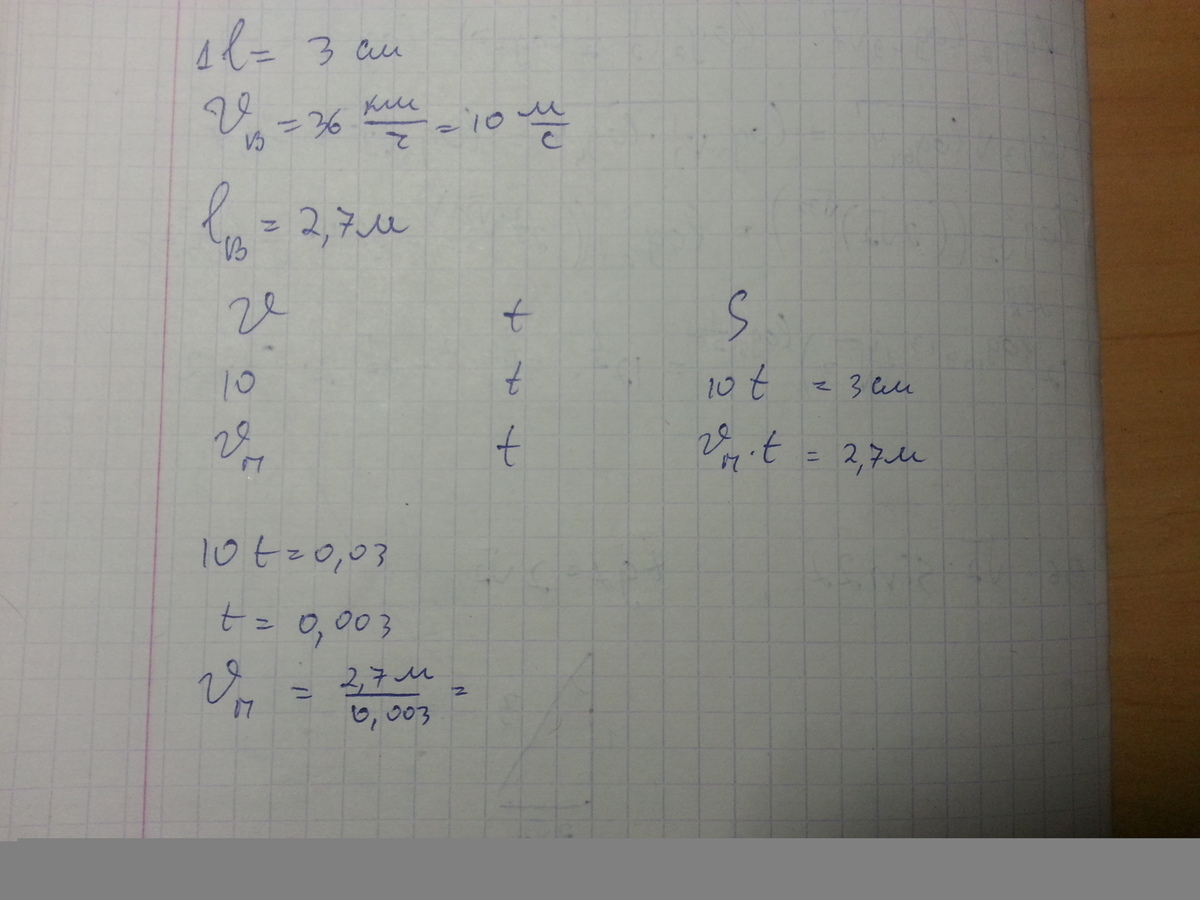 1 l = 3 см
V_в = 36 км/ч = 10 м/с
l_в = 2,7 м
V t S
10 t 10 t = 3 см
V_п t V_п · t = 2,7 м
10 t = 0,03
t = 0,003
V_п = 2,7 м / 0,003 =